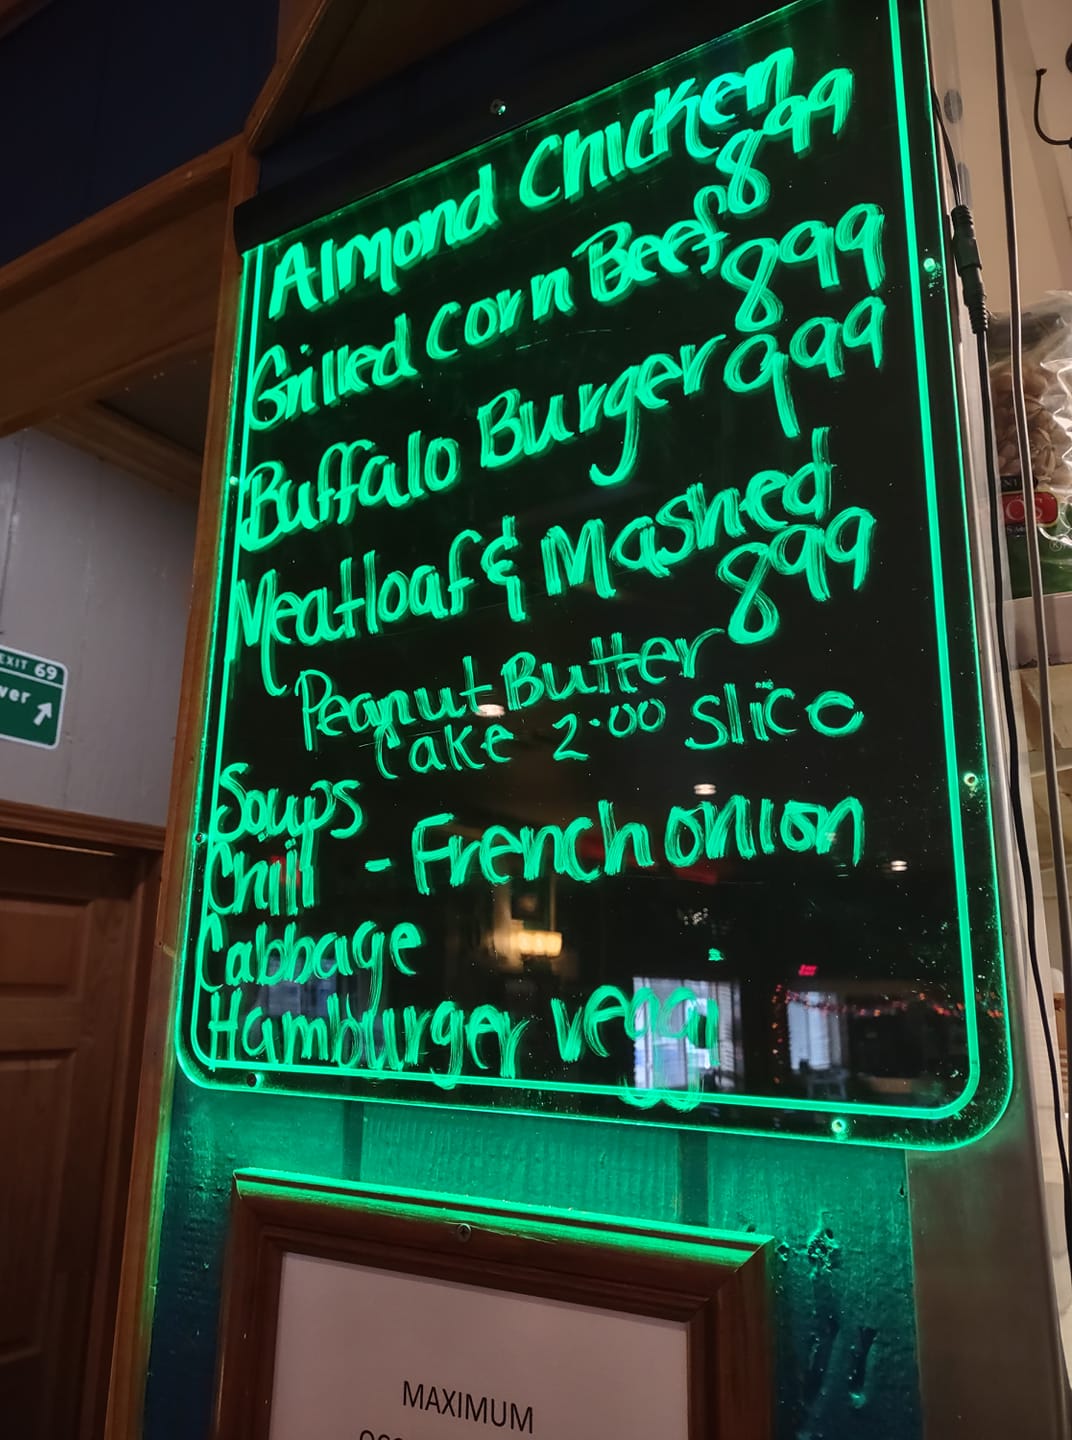 Almond Chicken
8 99
Grilled Corn Beef
8 99
Buffalo Burger 9 99
Meatloaf & Mashed
8 99
Peanut Butter
Cake 2.00 Slice
Soups
Chili - French onion
Cabbage
Hamburger vegg
EXIT 69
ver
MAXIMUM